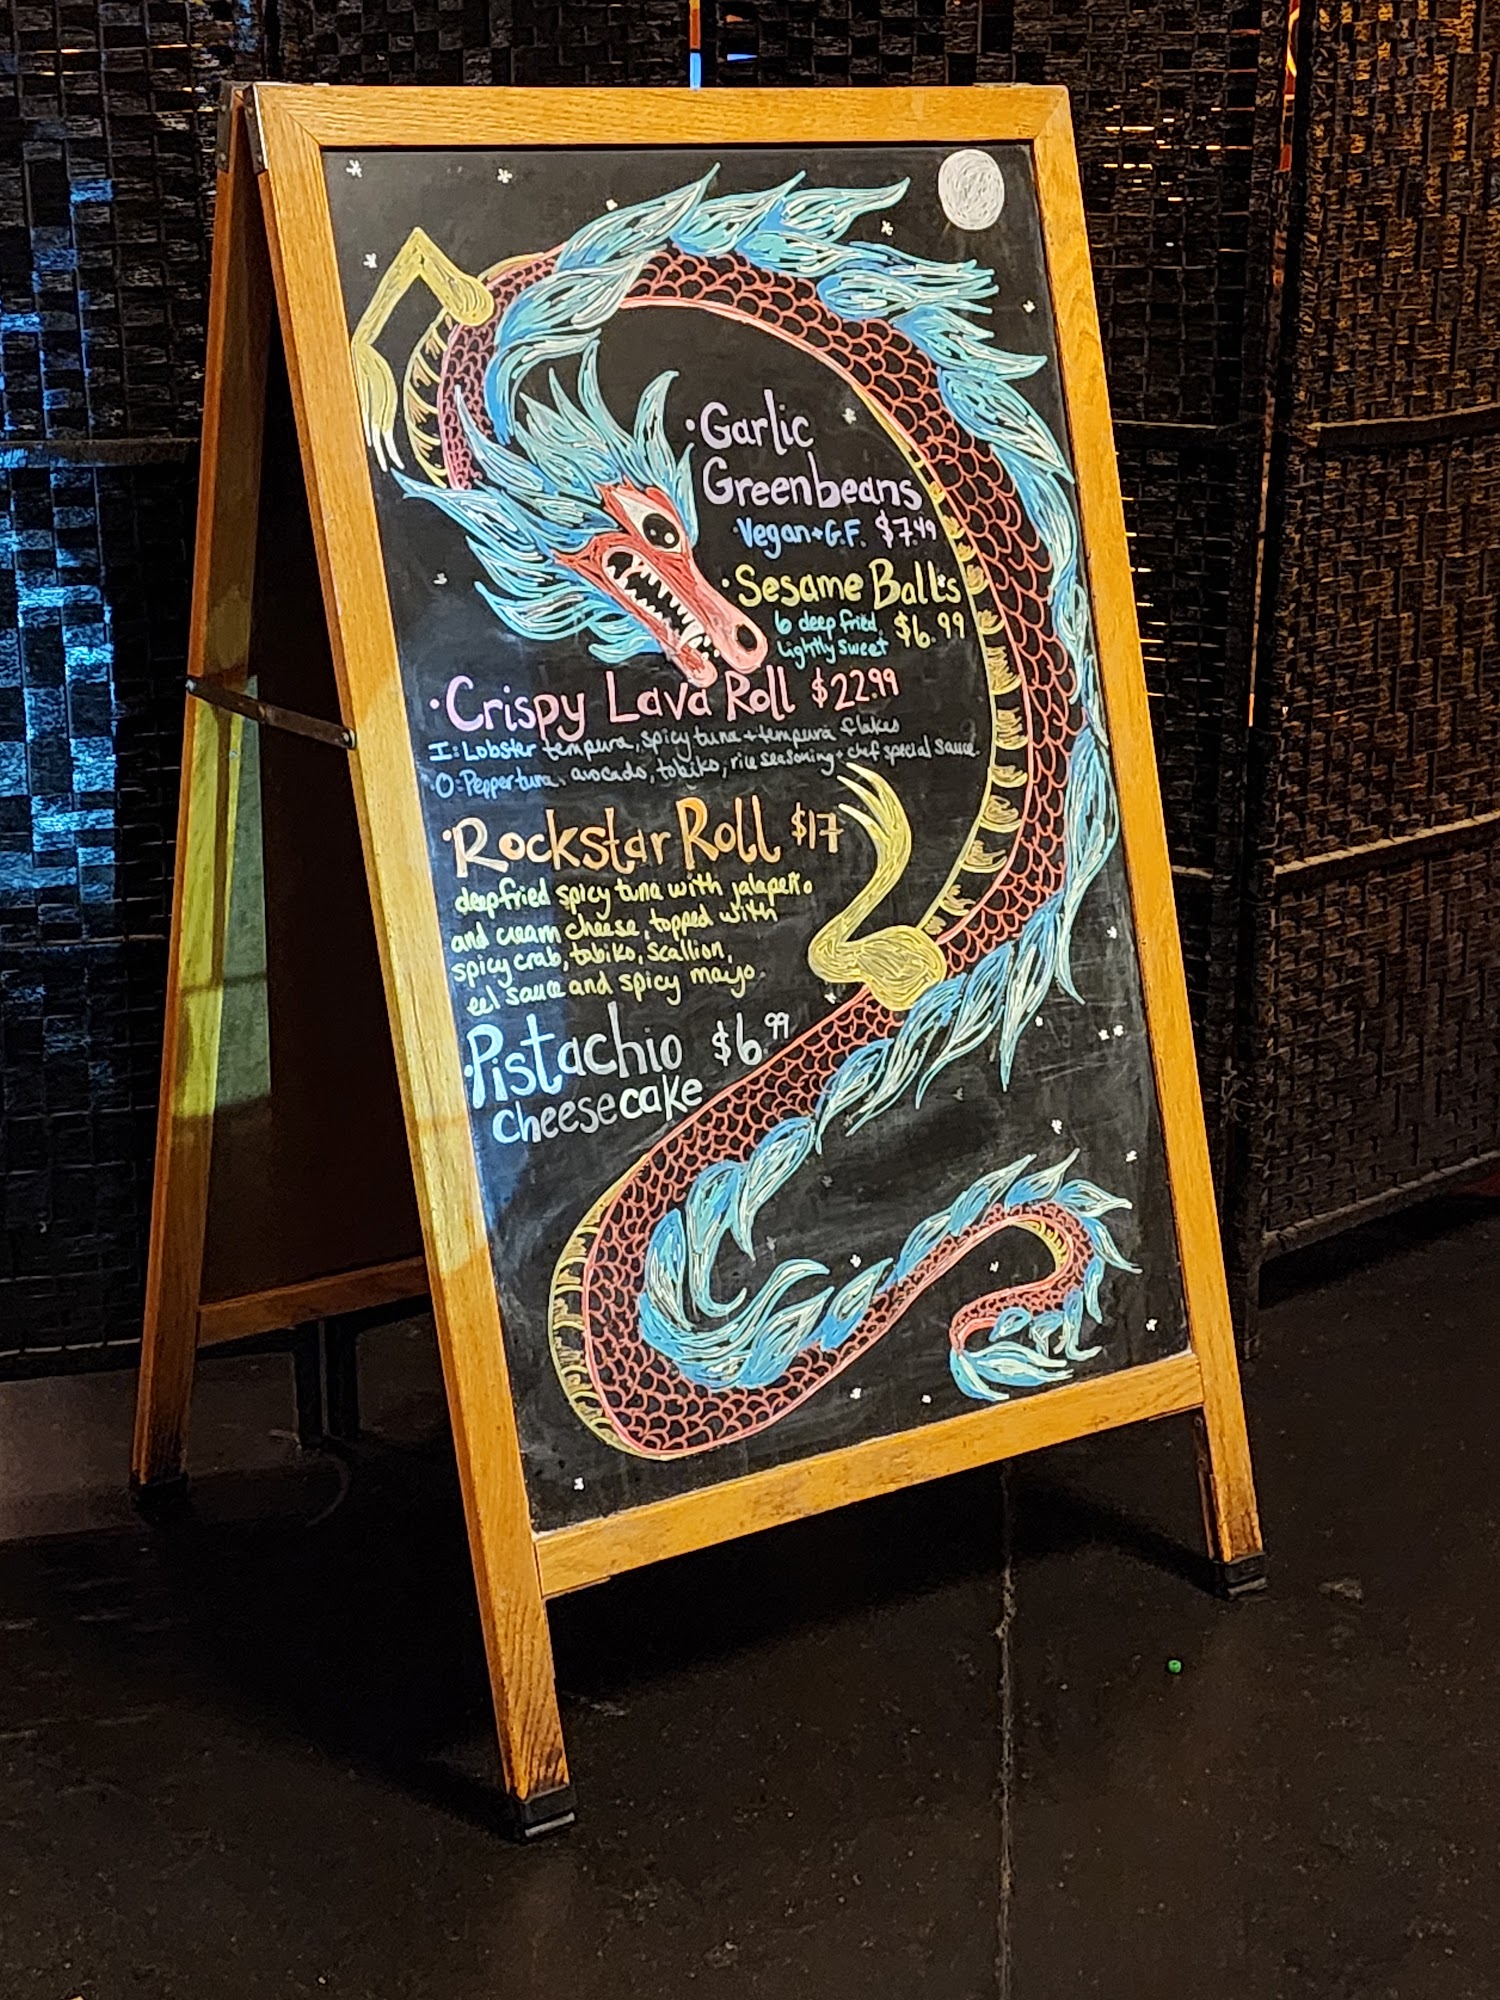 · Garlic
Greenbeans
· Vegan + G.F. $7.49
· Sesame Balls
6 deep fried $6.99
lightly sweet
· Crispy Lava Roll $22.99
I: Lobster tempura, spicy tuna + tempura flakes
O: Pepper tuna, avocado, tobiko, rice seasoning + chef special sauce.
· Rockstar Roll $17
deepfried spicy tuna with jalapeño
and cream cheese, topped with
spicy crab, tobiko, scallion,
eel sauce and spicy mayo.
· Pistachio $6.99
cheesecake